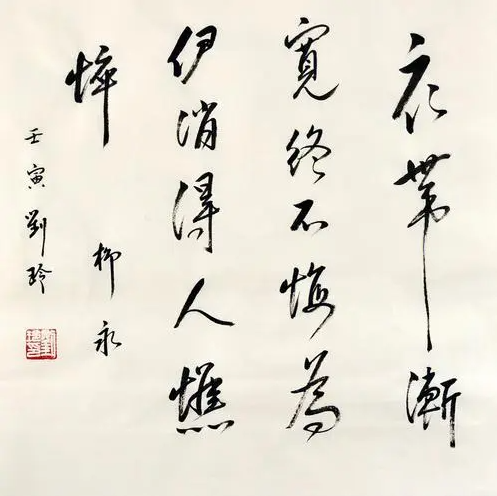 衣带渐
寬終不悔為
伊消得人憔
悴
柳永
壬寅劉玲